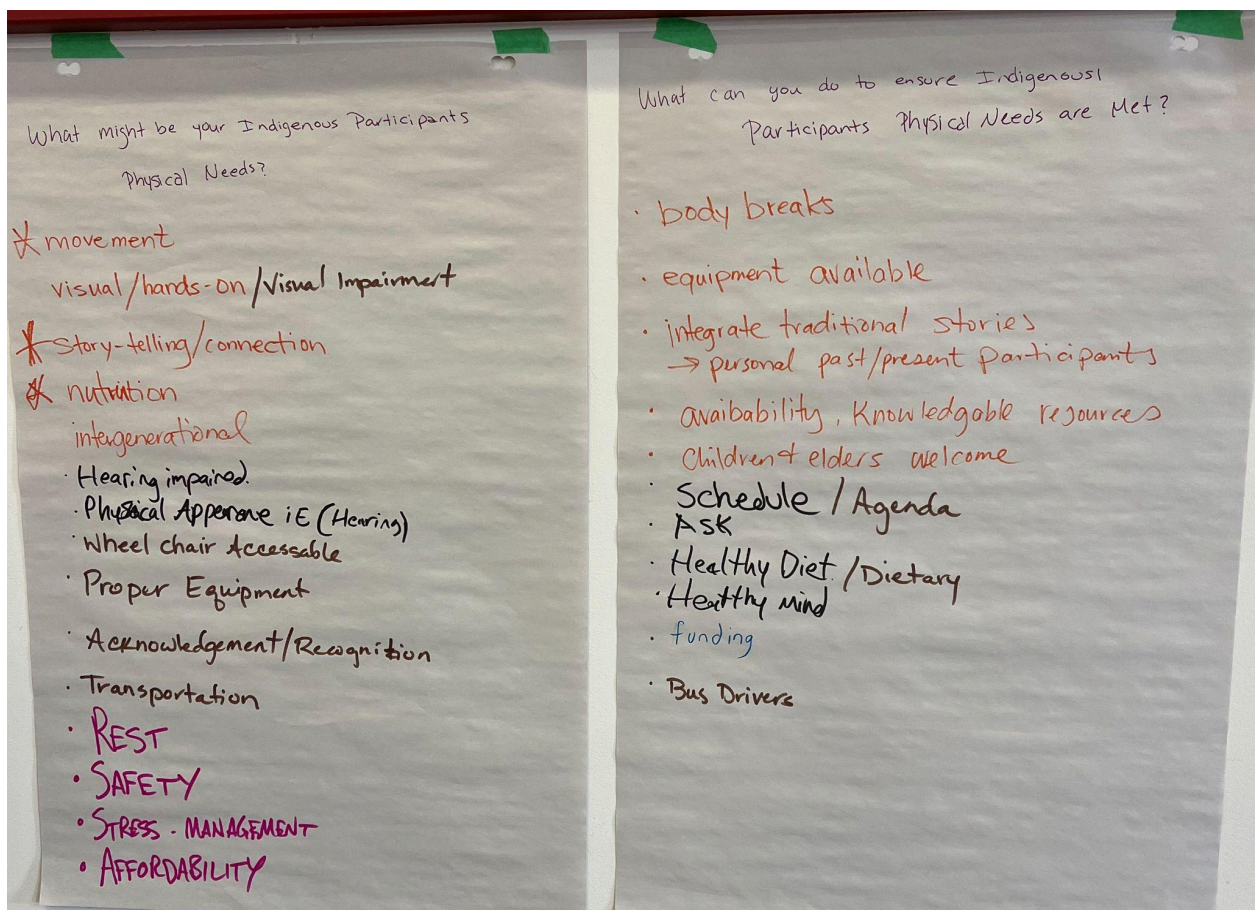 What might be your Indigenous Participants
Physical Needs?
* movement
visual/hands-on/Visual Impairment
* story-telling/connection
* nutrition
intergenerational
· Hearing impaired.
· Physical Apperone iE (Hearing)
· Wheel chair Accessable
· Proper Equipment
· Acknowledgement/Recognition
· Transportation
· REST
· SAFETY
· STRESS - MANAGEMENT
· AFFORDABILITY
What can you do to ensure Indigenous
Participants Physical Needs are Met?
· body breaks
· equipment available
· integrate traditional stories
→ personal past/present participants
· avaibability, Knowledgable resources
· Children & elders welcome
· Schedule / Agenda
· ASK
· Healthy Diet / Dietary
· Healthy Mind
· funding
· Bus Drivers